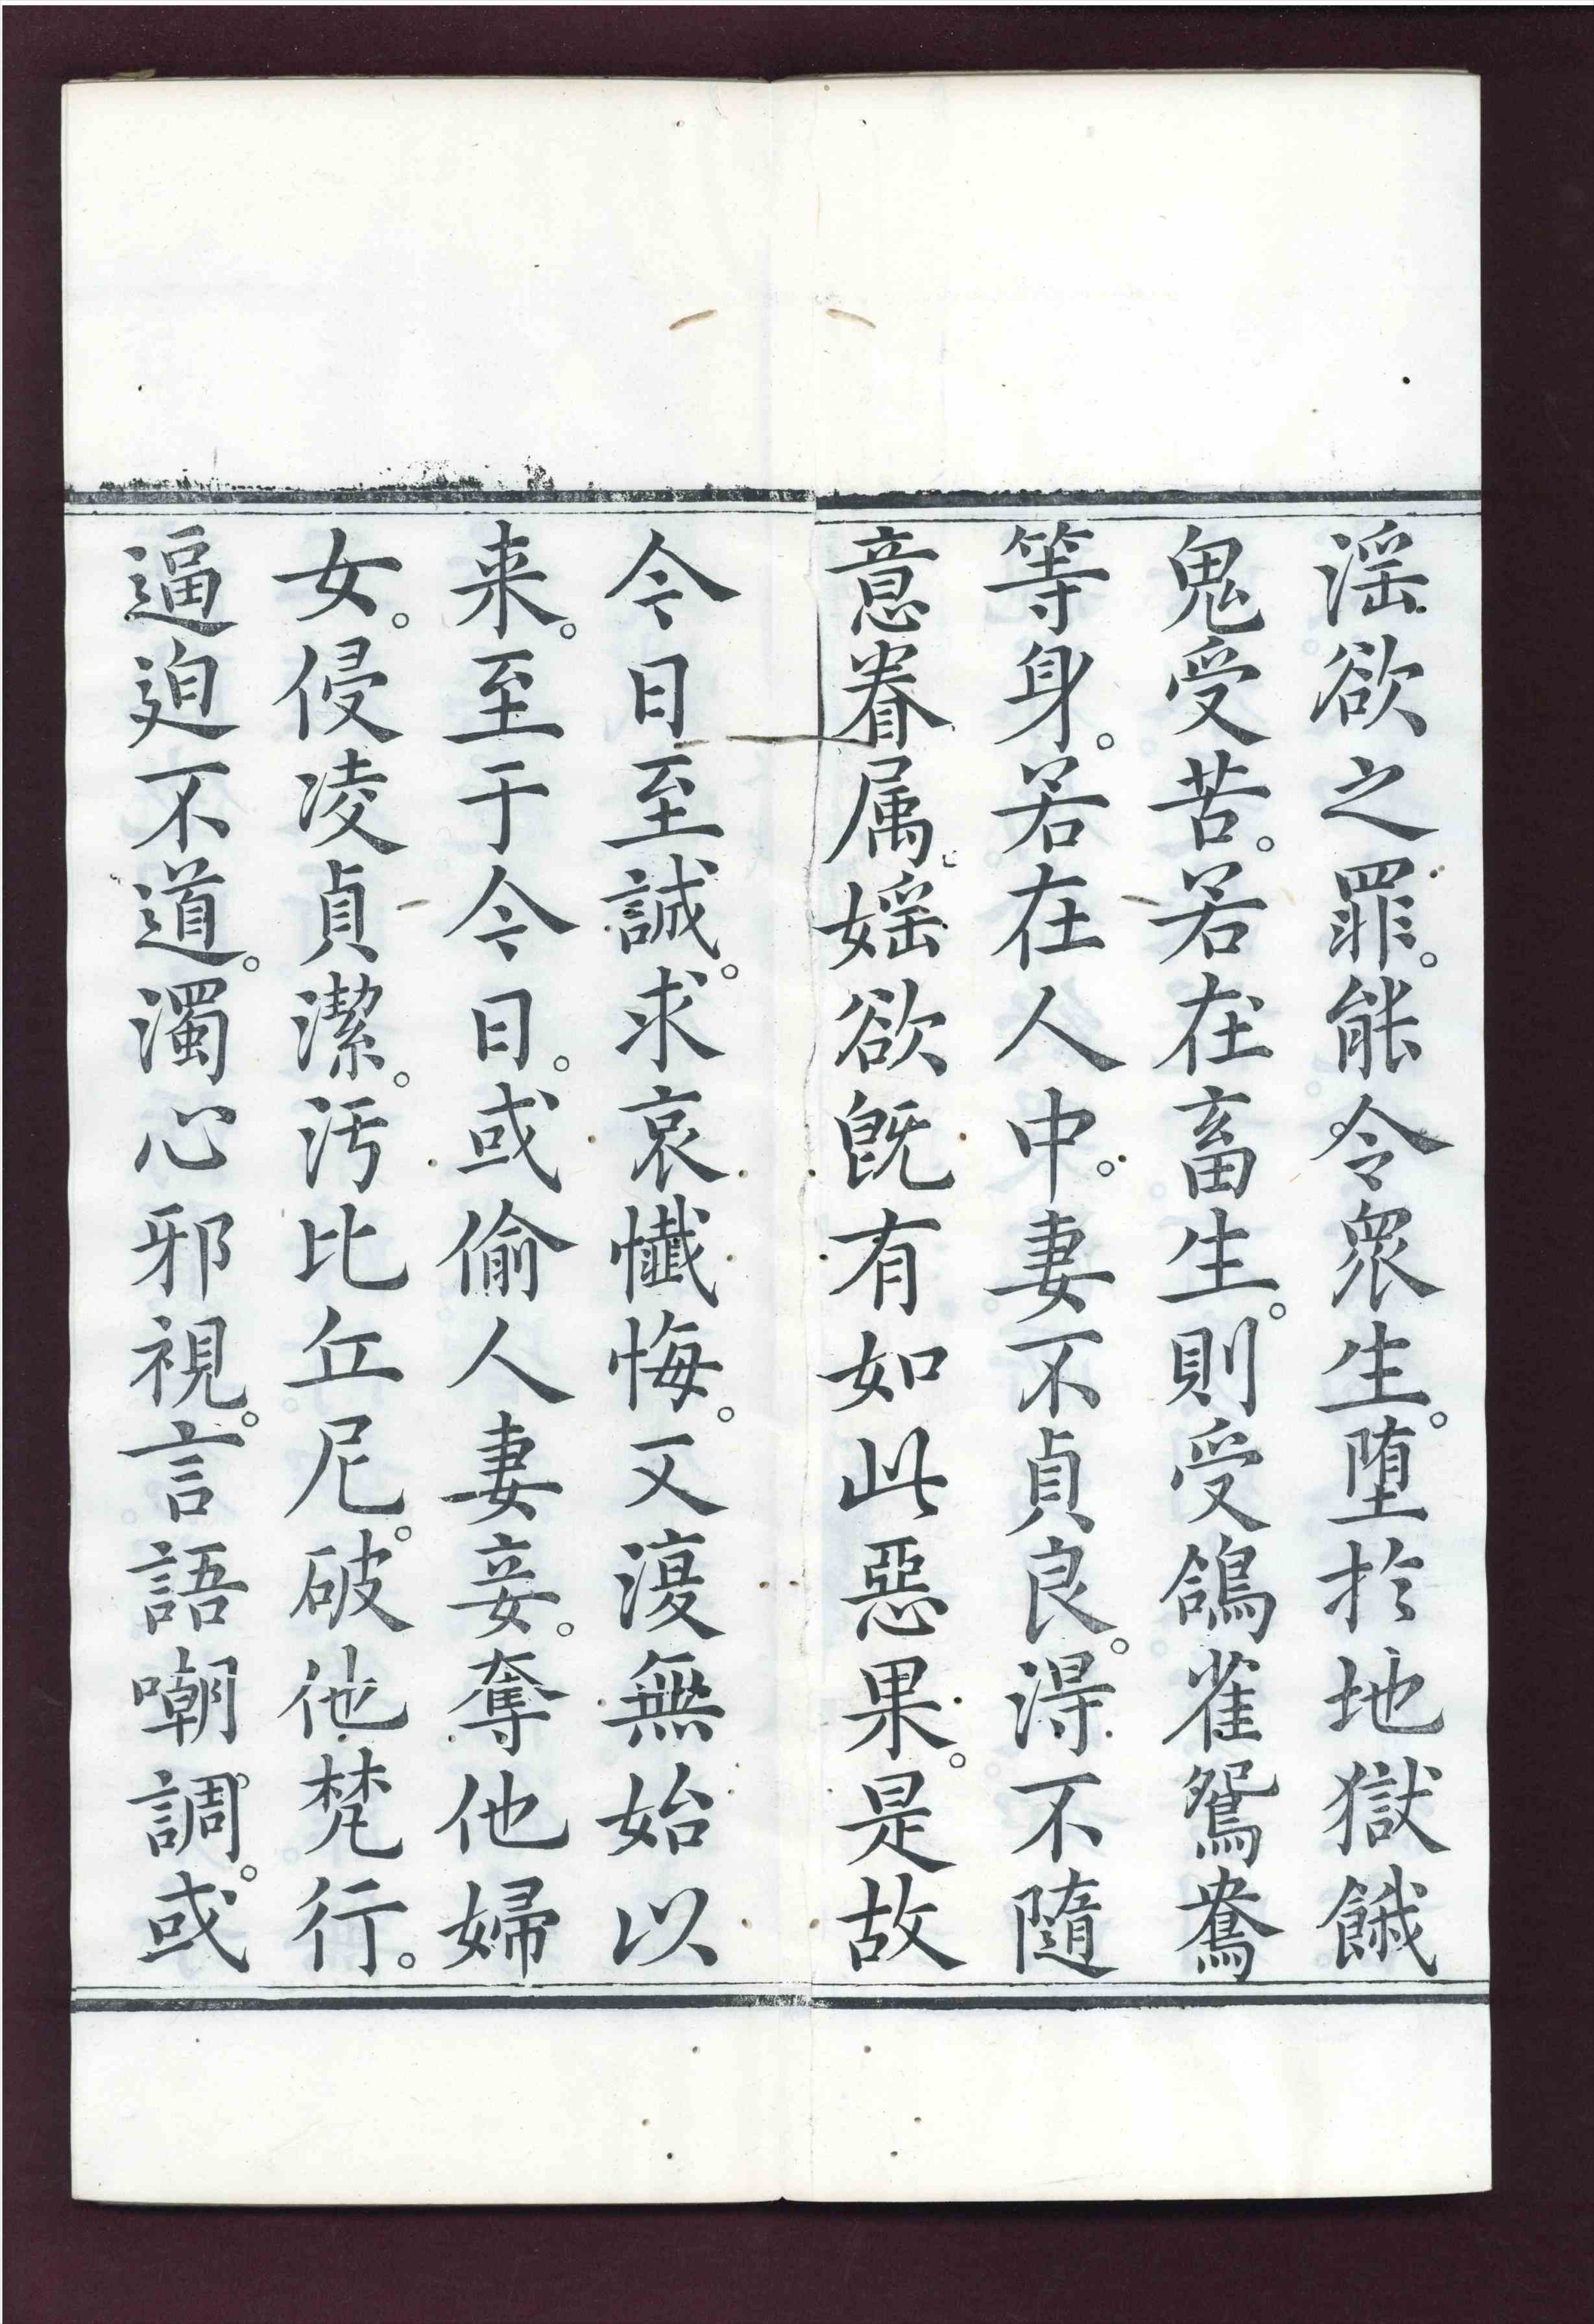 淫欲之罪。能令衆生。墮於地獄餓
鬼受苦。若在畜生。則受鴿雀鴛鴦
等身。若在人中。妻不貞良。得不隨
意眷属。婬欲既有如此惡果。是故
今日至誠。求哀懺悔。又復無始以
来。至于今日。或偷人妻妾。奪他婦
女。侵凌貞潔。汚比丘尼。破他梵行。
逼迫不道。濁心邪視。言語嘲調。或